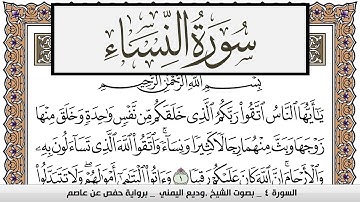 سُورَةُ النِّسَاءِ
بِسْمِ اللَّهِ الرَّحْمَٰنِ الرَّحِيمِ
يَا أَيُّهَا النَّاسُ اتَّقُوا رَبَّكُمُ الَّذِي خَلَقَكُم مِّن نَّفْسٍ وَاحِدَةٍ وَخَلَقَ مِنْهَا
زَوْجَهَا وَبَثَّ مِنْهُمَا رِجَالًا كَثِيرًا وَنِسَاءً ۚ وَاتَّقُوا اللَّهَ الَّذِي تَسَاءَلُونَ بِهِ
وَالْأَرْحَامَ ۚ إِنَّ اللَّهَ كَانَ عَلَيْكُمْ رَقِيبًا ١ وَآتُوا الْيَتَامَىٰ أَمْوَالَهُمْ ۖ وَلَا تَتَبَدَّلُوا
السورة ٤ _ بصوت الشيخ .وديع اليمني _ برواية حفص عن عاصم